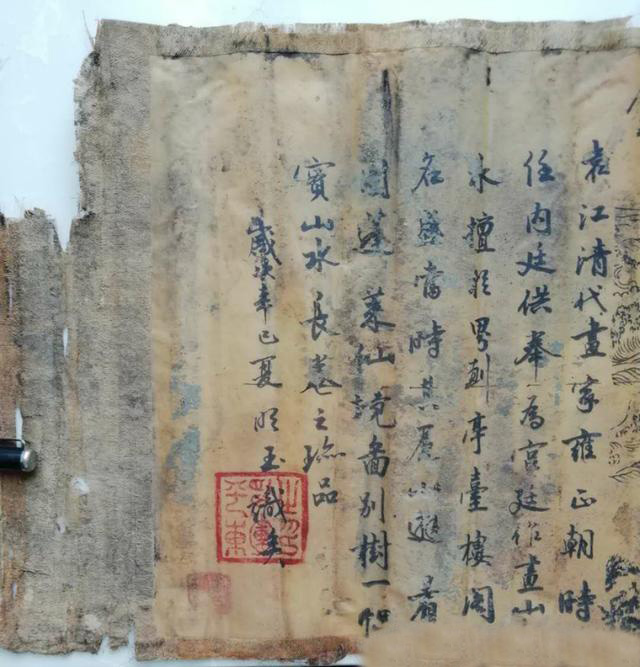 袁江清代畫家雍正朝時
任内廷供奉為宮廷作畫山
水擅於界劃亭臺樓閣
名盛當時其山避暑
圖蓬萊仙境圖別樹一
實山水長卷之珍品
歲次辛巳夏明玉識